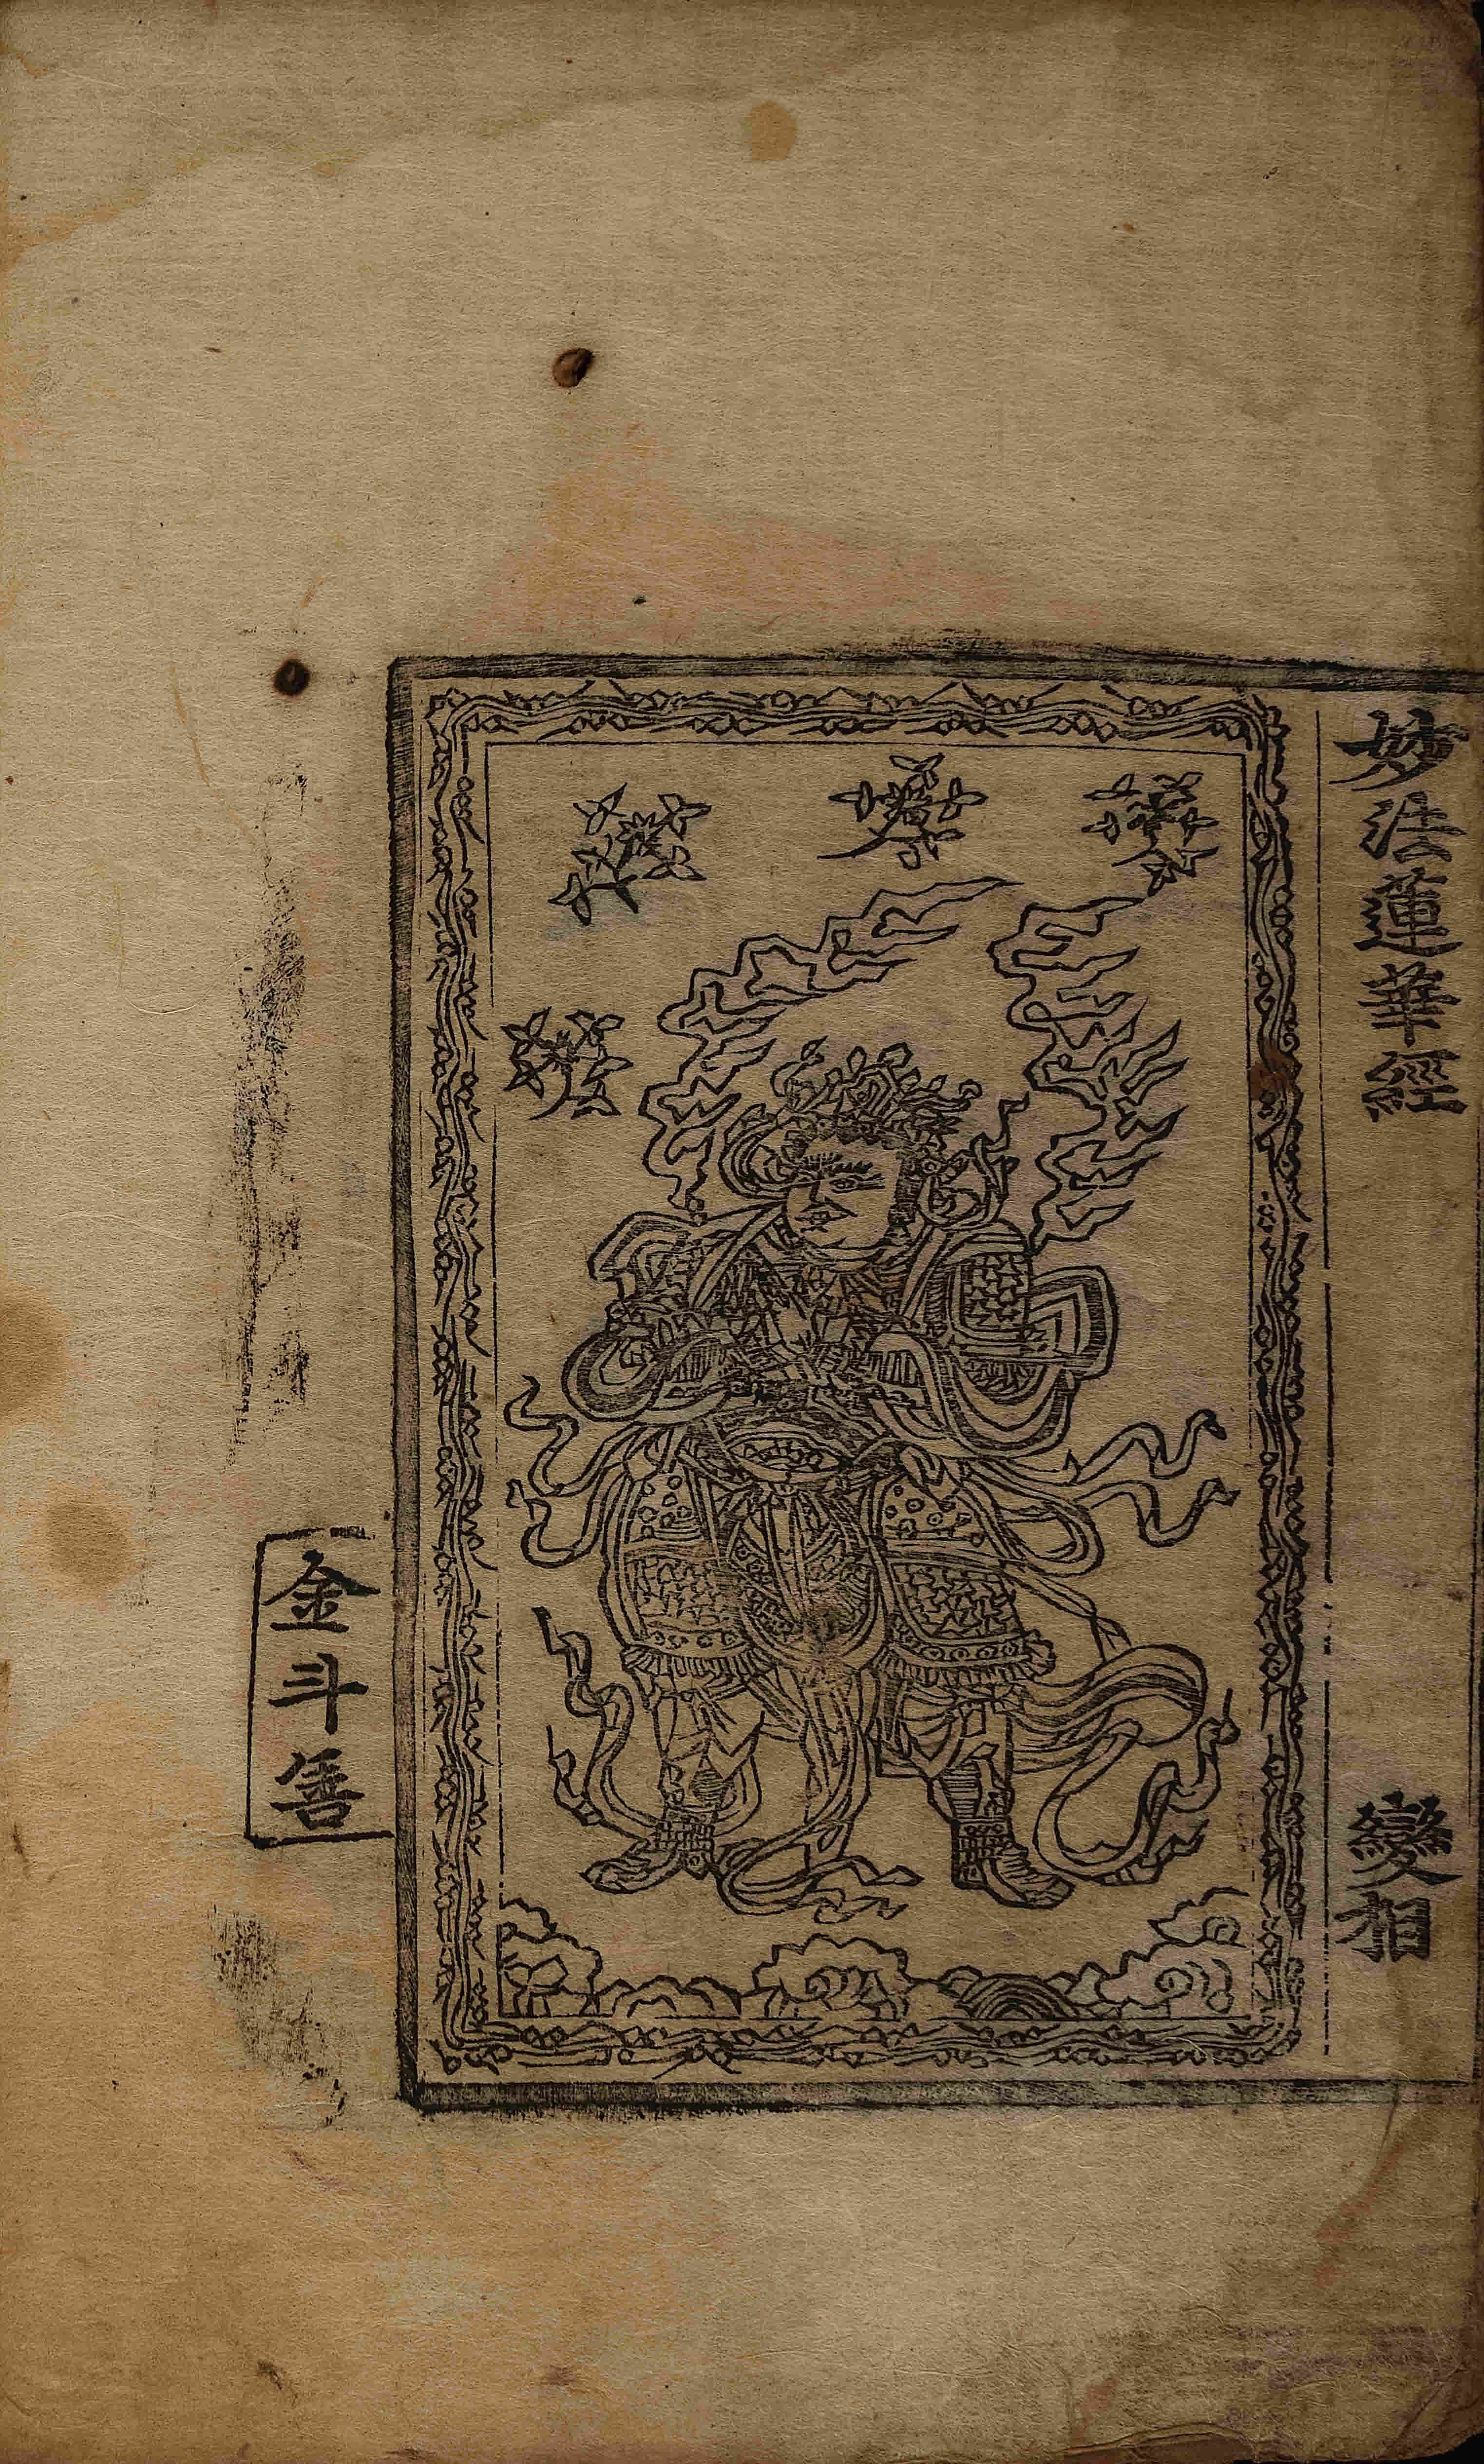 妙法蓮華經 變相
金斗善